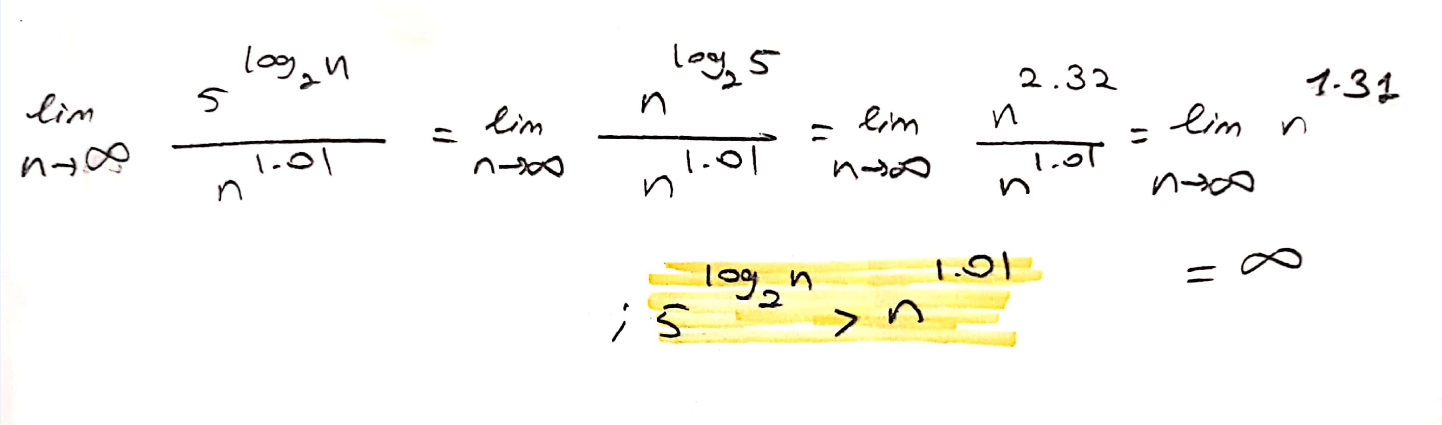 lim n→∞ 5^(log₂n) / n^1.01 = lim n→∞ n^(log₂5) / n^1.01 = lim n→∞ n^2.32 / n^1.01 = lim n→∞ n^1.31
= ∞
; 5^(log₂n) > n^1.01